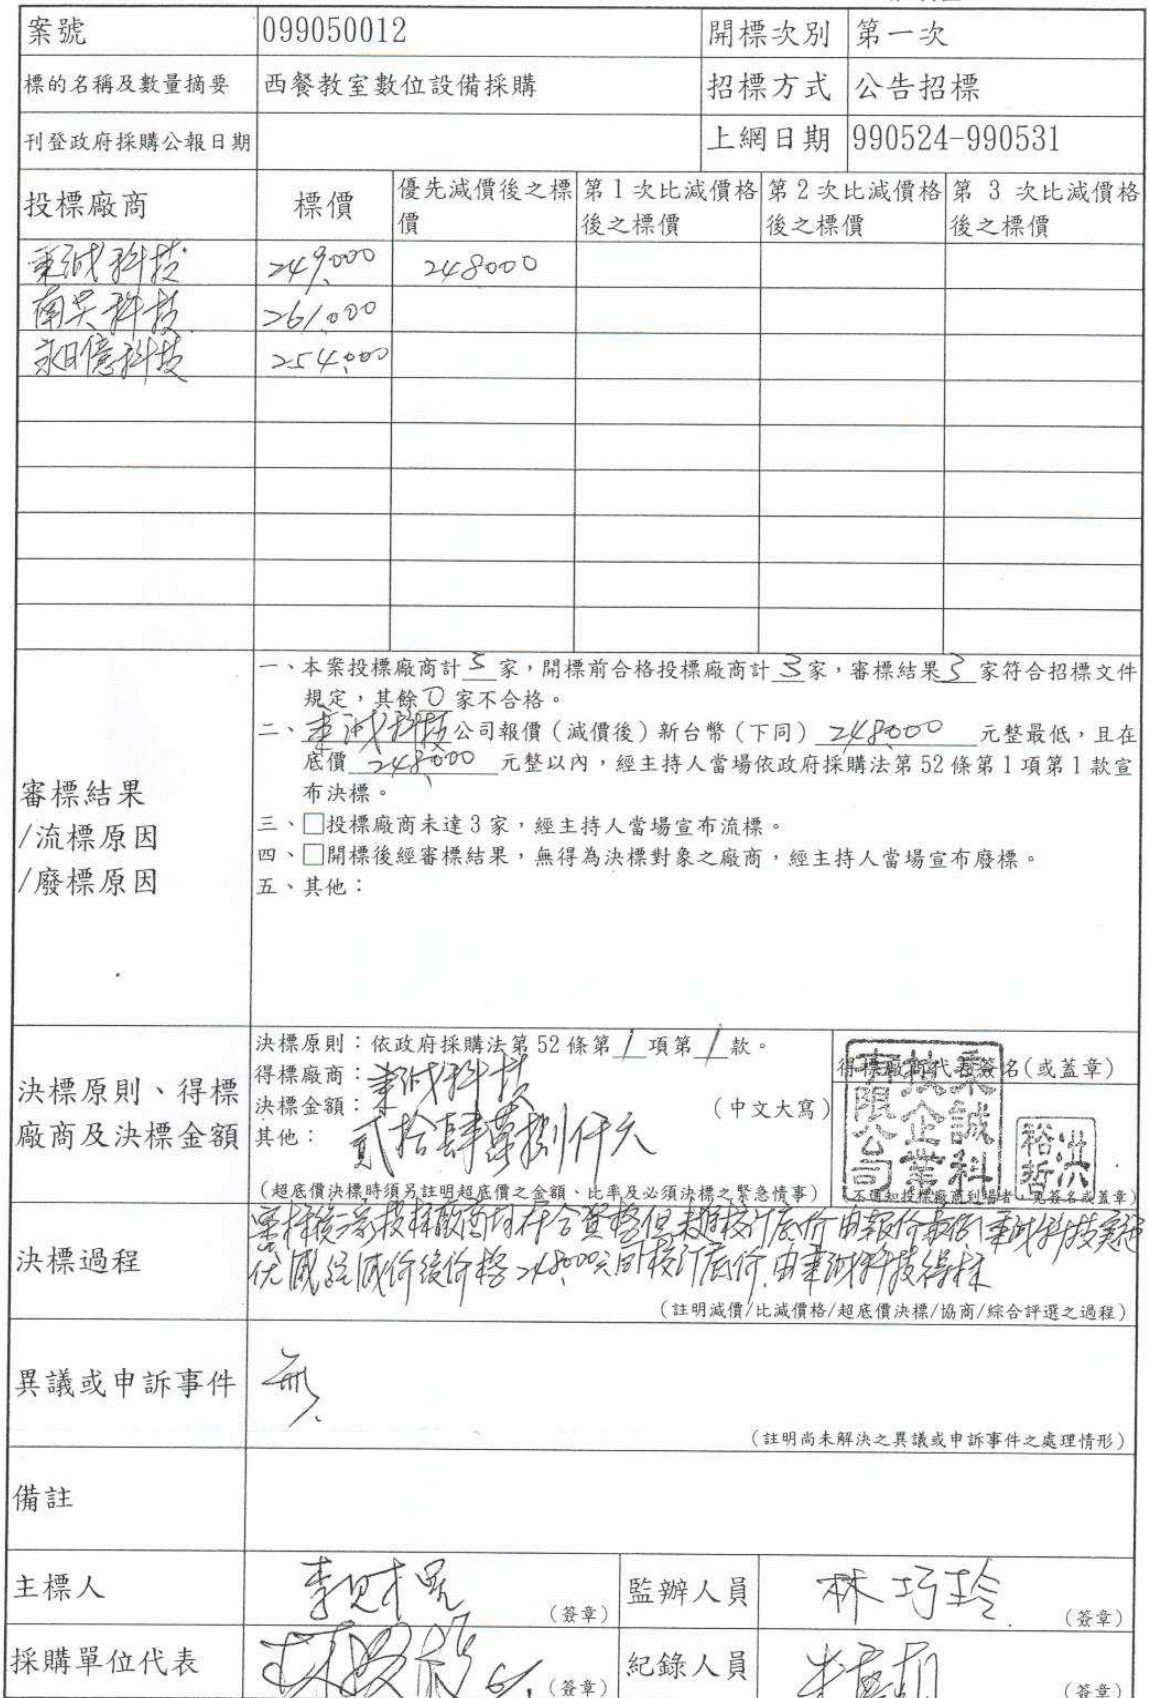 案號 099050012 開標次別 第一次
標的名稱及數量摘要 西餐教室數位設備採購 招標方式 公告招標
刊登政府採購公報日期 上網日期 990524-990531
投標廠商 標價 優先減價後之標價 第1次比減價格後之標價 第2次比減價格後之標價 第3次比減價格後之標價
秉誠科技 249,000 248000
科技 261,000
科技 254,000
審標結果
/流標原因
/廢標原因
一、本案投標廠商計 3 家,開標前合格投標廠商計 3 家,審標結果 3 家符合招標文件
規定,其餘 0 家不合格。
二、秉誠科技公司報價(減價後)新台幣(下同) 248,000 元整最低,且在
底價 248,000 元整以內,經主持人當場依政府採購法第52條第1項第1款宣
布決標。
三、□投標廠商未達3家,經主持人當場宣布流標。
四、□開標後經審標結果,無得為決標對象之廠商,經主持人當場宣布廢標。
五、其他:
決標原則、得標
廠商及決標金額
決標原則:依政府採購法第52條第 1 項第 1 款。
得標廠商:秉誠科技
決標金額: (中文大寫)
其他: 貳拾肆萬捌仟元
(超底價決標時須另註明超底價之金額、比率及必須決標之緊急情事)
得標廠商代表簽名(或蓋章)
秉誠科技企業有限公司
洪裕哲
(不通知投標廠商到場者,免簽名或蓋章)
決標過程
審標後三家投標廠商均符合資格但未進核訂底价 由報价最低秉誠科技實施
优減 經減价後价格248,000元同核訂底价,由秉誠科技得标
(註明減價/比減價格/超底價決標/協商/綜合評選之過程)
異議或申訴事件 無
(註明尚未解決之異議或申訴事件之處理情形)
備註
主標人 (簽章) 監辦人員 林巧玲 (簽章)
採購單位代表 (簽章) 紀錄人員 (簽章)